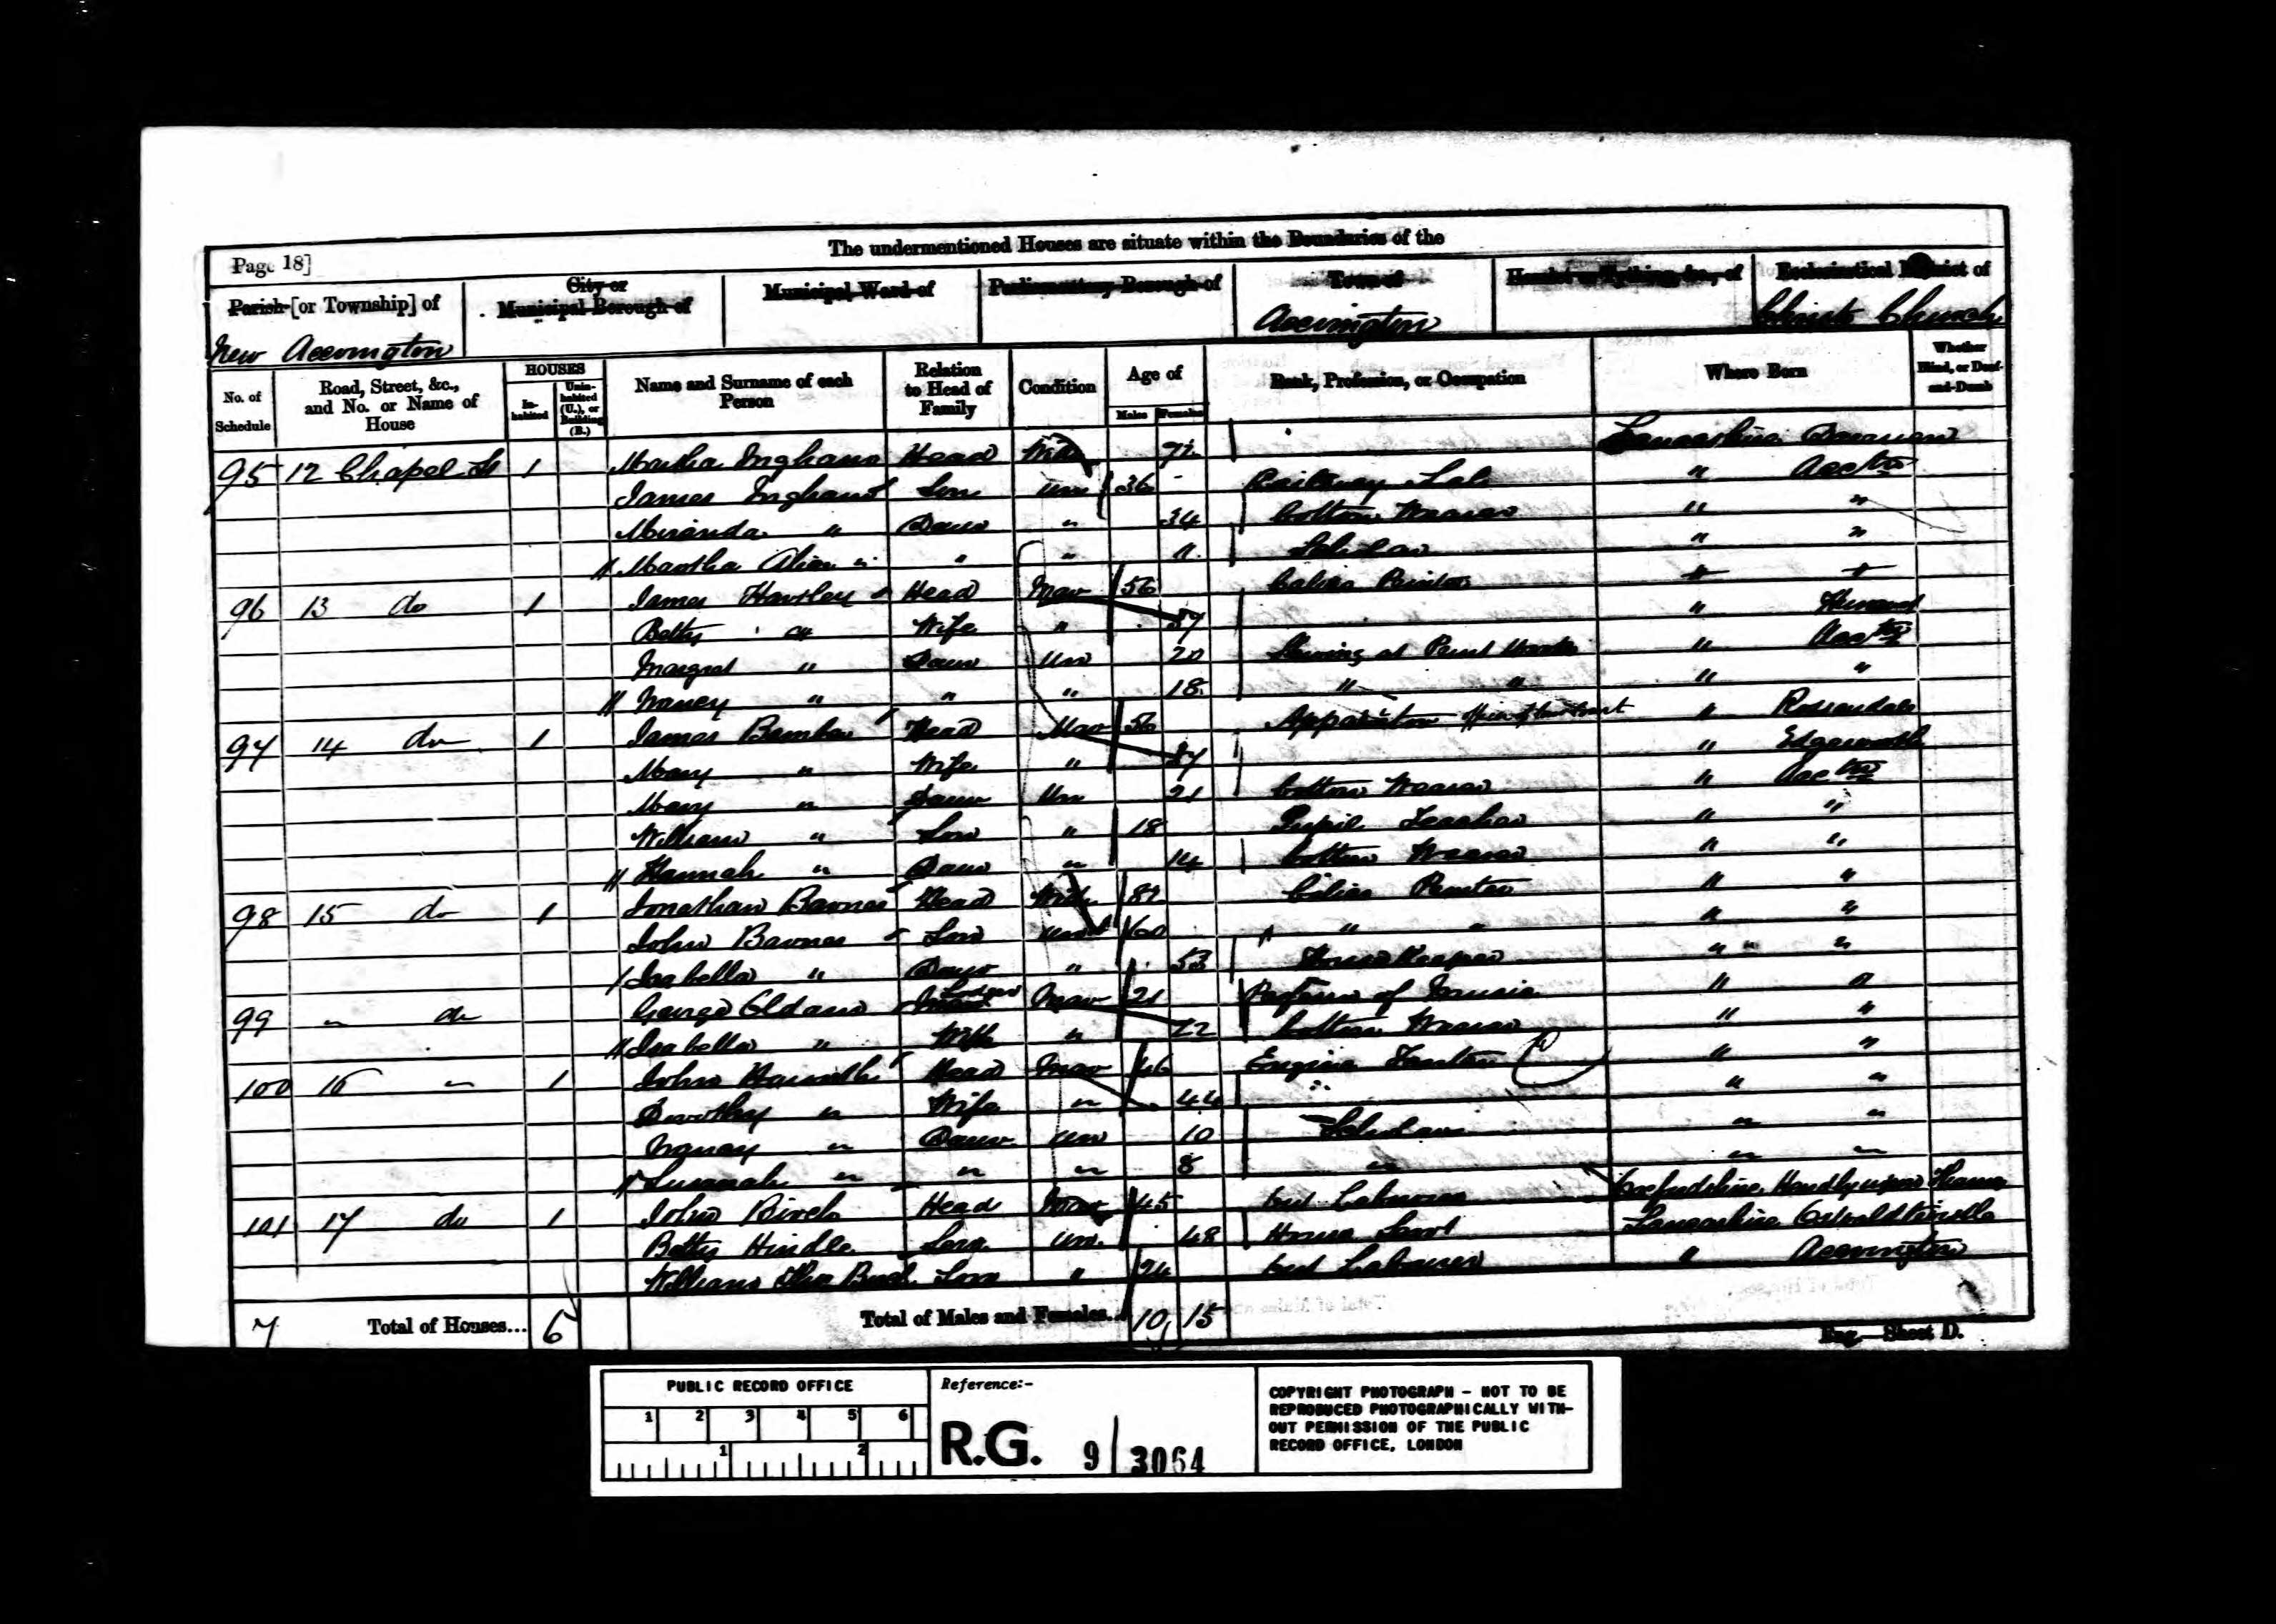 The undermentioned Houses are situate within the Boundaries of the
Page 18]
Parish [or Township] of
City or Municipal Borough of
Municipal Ward of
Parliamentary Borough of
Town of
Hamlet or Tything, &c., of
Ecclesiastical District of
New Accrington
Accrington
Christ Church
No. of Schedule
Road, Street, &c., and No. or Name of House
HOUSES
Inhabited
Uninhabited (U.), or Building (B.)
Name and Surname of each Person
Relation to Head of Family
Condition
Age of
Males
Females
Rank, Profession, or Occupation
Where Born
Whether Blind, or Deaf-and-Dumb
95 12 Chapel St 1 Martha Ingham Head Wid Lancashire
James Ingham Son Un 36 Railway Lab " Acctn
Miranda " Daur " 34 Cotton Weaver " "
Martha Alice " " " 11 Scholar " "
96 13 do 1 James Hartley Head Mar 56 Calico Printer " "
Betty " Wife " 57 "
Margret " Daur Un 20 Sewing at Print Works " Acctn
Nancy " " " 18 " " " "
97 14 do 1 James Head Mar 56 " Rossendale
Mary " Wife " 57 " Edgeworth
Mary " Daur Un 21 Cotton Weaver " Acctn
William " Son " 18 Pupil Teacher " "
Hannah " Daur " 14 Cotton Weaver " "
98 15 do 1 Jonathan Barnes Head Wid 82 Calico Printer " "
John Barnes Son Un 60 " " " "
Isabella " Daur " 53 House Keeper " "
99 " do George Oldam Lodger Mar 21 Professor of Music " "
Isabella " Wife " 22 Cotton Weaver " "
100 16 " 1 John Haworth Head Mar 46 Engine Tenter " "
Dorothy " Wife " 44 " "
Nancy " Daur Un 10 Scholar " "
Susannah " " " 8 " " "
101 17 do 1 John Birch Head 45 Labourer
Betty Hindle Serv. Un. 48 House Servt Lancashire Oswaldtwistle
William Thos Birch Son " 24 Labourer " Accrington
7 Total of Houses... 6 Total of Males and Females... 10 15
Eng.—Sheet D.
PUBLIC RECORD OFFICE
1 2 3 4 5 6
1 2
Reference:-
R.G. 9/3064
COPYRIGHT PHOTOGRAPH - NOT TO BE
REPRODUCED PHOTOGRAPHICALLY WITH-
OUT PERMISSION OF THE PUBLIC
RECORD OFFICE, LONDON